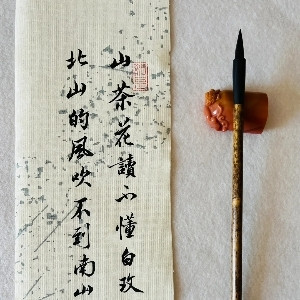 山茶花讀不懂白玫
北山的風吹不到南山